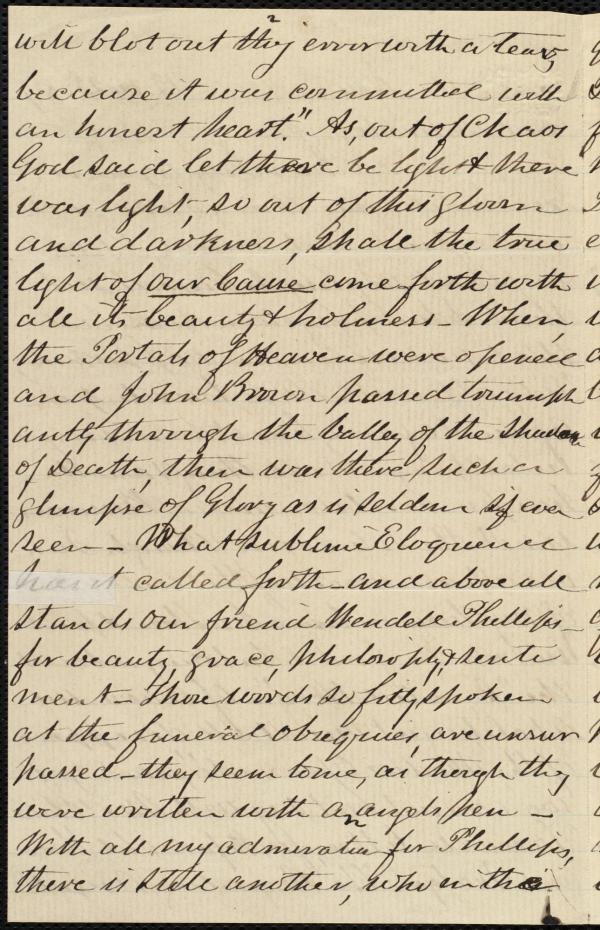 2
will blot out thy error with a tear,
because it was committed with
an honest heart." As, out of Chaos
God said let there be light & there
was light, so out of this gloom
and darkness, shall the true
light of our Cause come forth with
all its beauty & holiness - When
the Portals of Heaven were opened
and John Brown passed triumph
antly through the Valley of the Shadow
of Death, then was there such a
glimpse of Glory as is seldom if ever
seen - What sublime Eloquence
has it called forth - and above all
stands our friend Wendell Phillips -
for beauty, grace, philosophy & senti
ment - Those words so fitly spoken
at the funeral obsequies, are unsur
passed - they seem to me, as though they
were written with an angels pen -
With all my admiration for Phillips,
there is still another, who in the